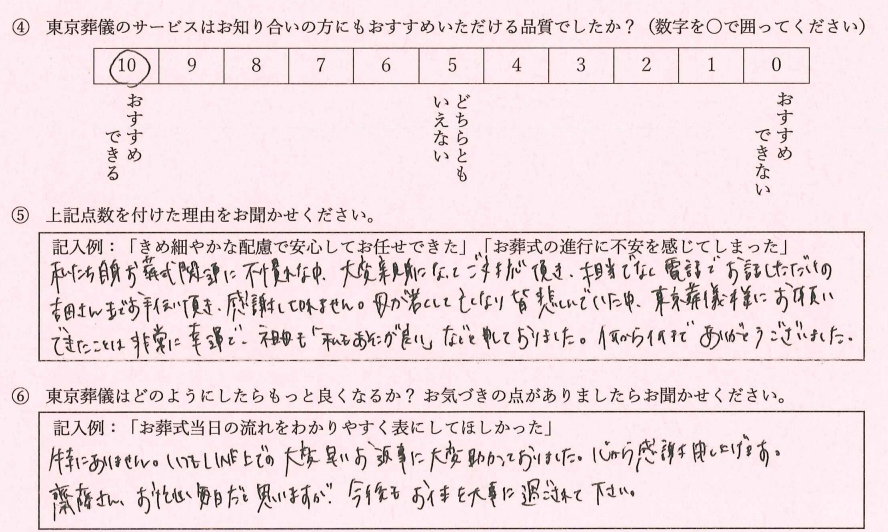 ④ 東京葬儀のサービスはお知り合いの方にもおすすめいただける品質でしたか？（数字を〇で囲ってください）
10 9 8 7 6 5 4 3 2 1 0
おすすめできる
どちらともいえない
おすすめできない
⑤ 上記点数を付けた理由をお聞かせください。
記入例：「きめ細やかな配慮で安心してお任せできた」「お葬式の進行に不安を感じてしまった」
私たち自身お葬式関連に不慣れな中、大変親身になってご対応頂き、担当でなく電話でお話しただけの
吉田さんまでお手伝い頂き、感謝しても切れません。母が若くして亡くなり皆悲しんでいた中、東京葬儀様にお願い
できたことは非常に幸運で、祖母も「私もあそこが良い」などと申しておりました。何から何までありがとうございました。
⑥ 東京葬儀はどのようにしたらもっと良くなるか？ お気づきの点がありましたらお聞かせください。
記入例：「お葬式当日の流れをわかりやすく表にしてほしかった」
特にありません。いつもLINE上での大変早いお返事に大変助かっておりました。心から感謝を申し上げます。
齋藤さん、お忙しい毎日だと思いますが、今後もお仕事を大事に過ごされて下さい。